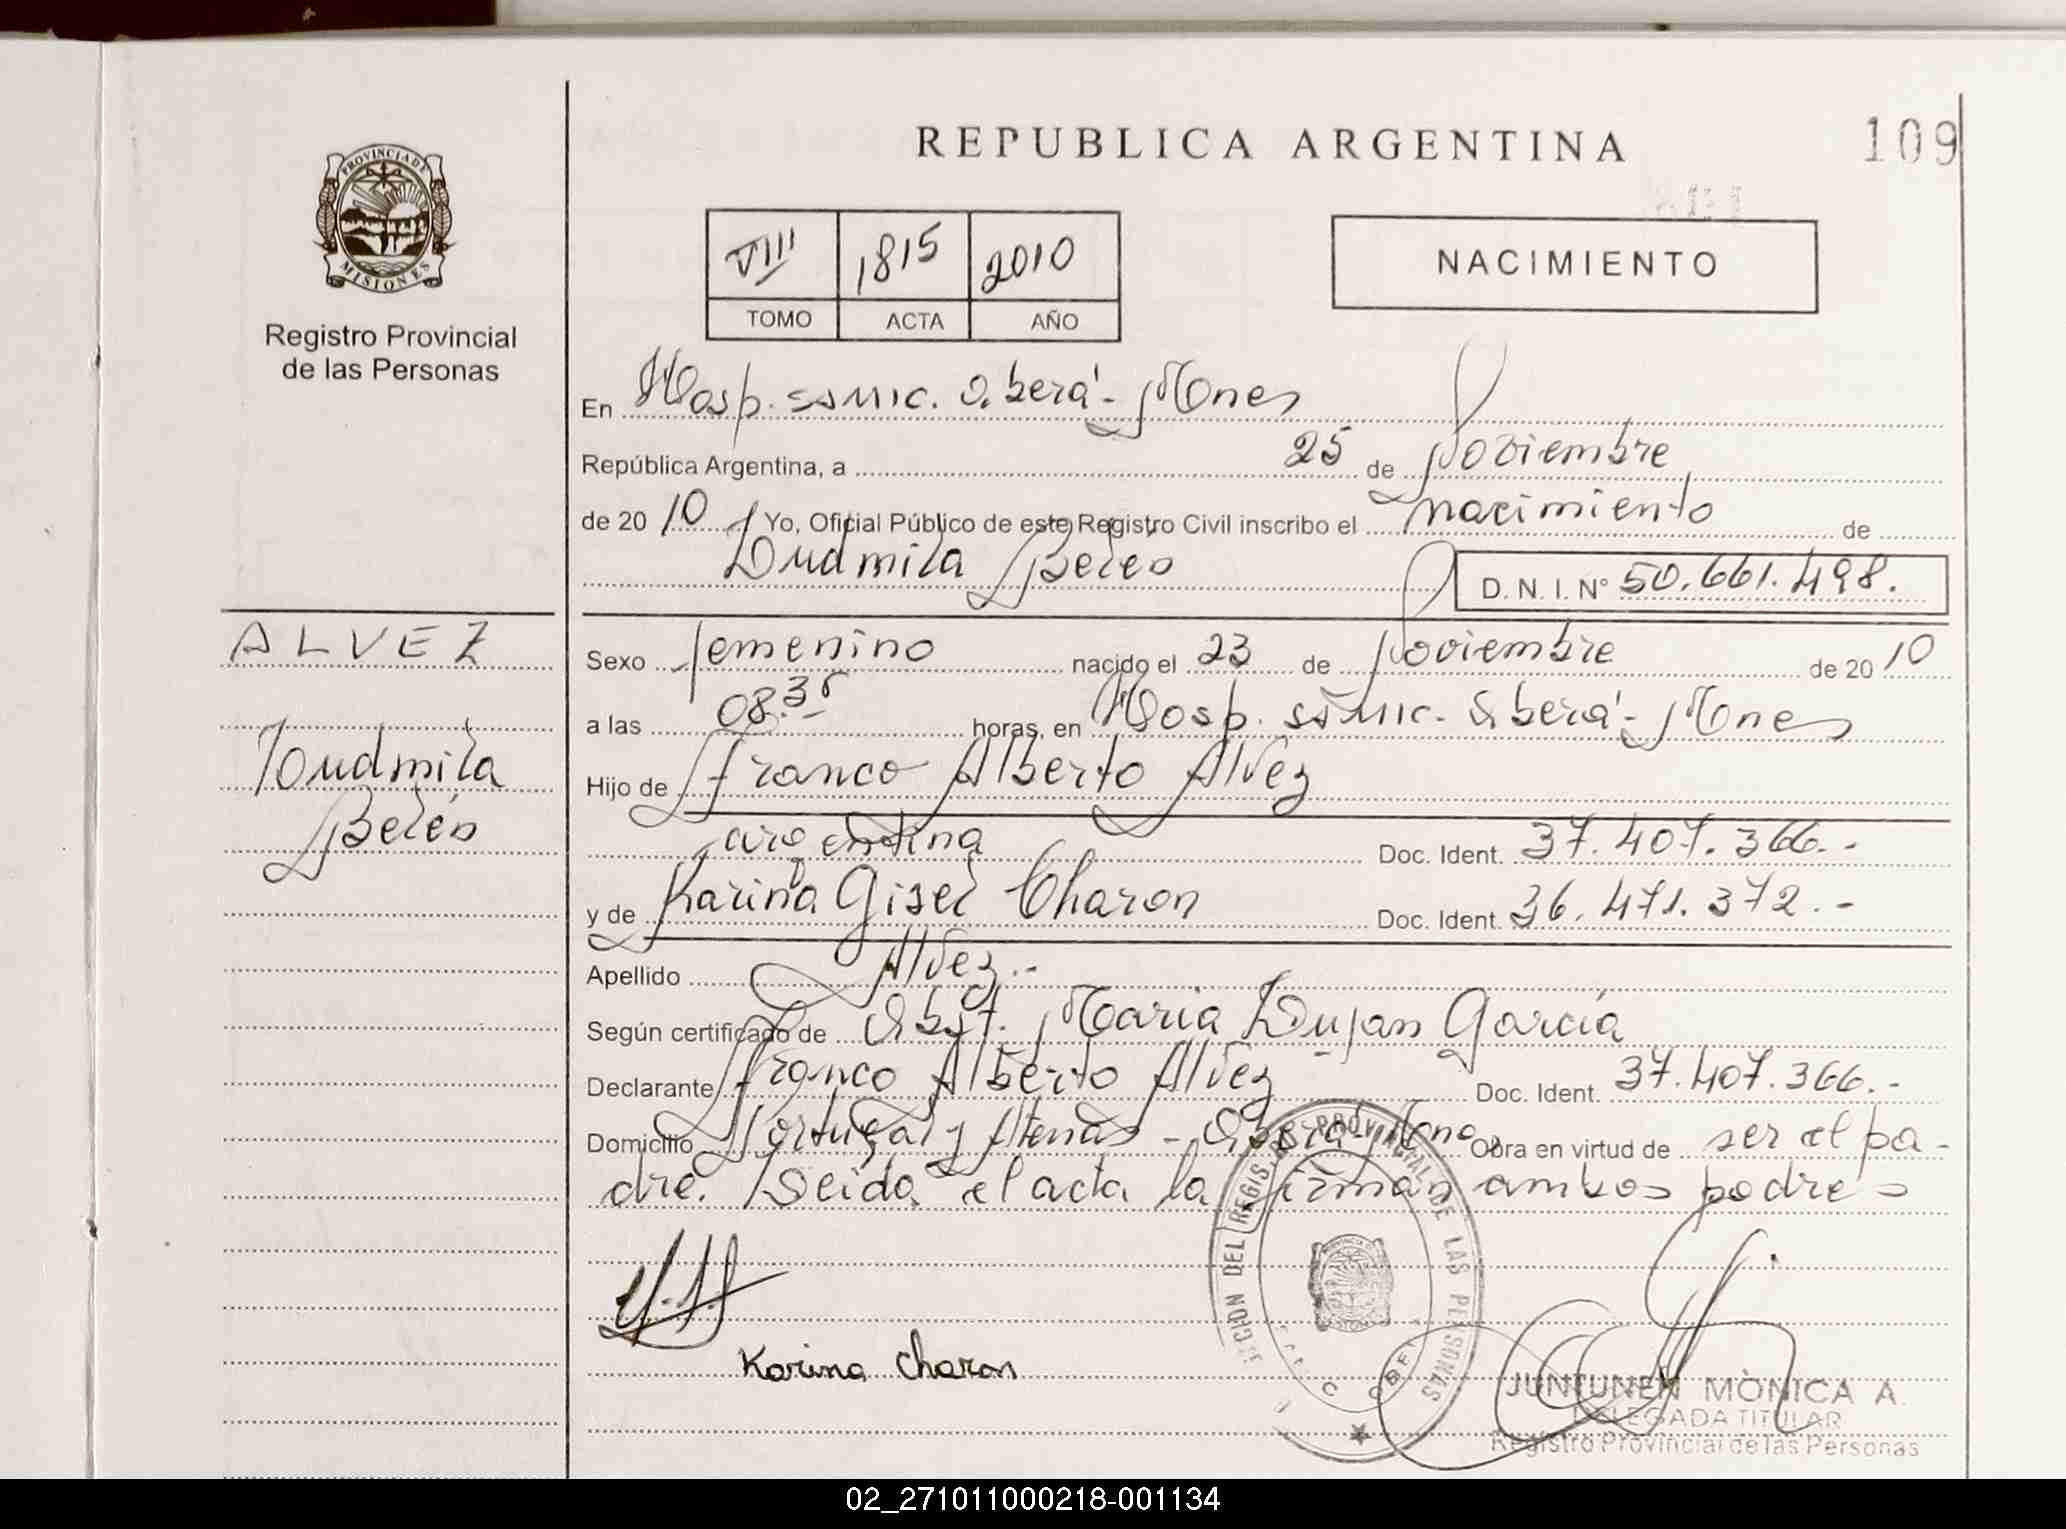 REPUBLICA ARGENTINA
109
PROVINCIA DE
MISIONES
Registro Provincial
de las Personas
VIII 1815 2010
TOMO ACTA AÑO
NACIMIENTO
En Hosp. Oberá - Mnes
República Argentina, a 25 de Noviembre
de 20 10 Yo, Oficial Público de este Registro Civil inscribo el nacimiento de
Ludmila Belén
D. N. I. N° 50.661.498.
ALVEZ
Ludmila
Belén
Sexo femenino nacido el 23 de Noviembre de 20 10
a las 08.35 horas, en Hosp. Oberá - Mnes
Hijo de Franco Alberto Alvez
argentina Doc. Ident. 37.407.366.-
y de Karina Gisel Charon Doc. Ident. 36.471.372.-
Apellido Alvez.-
Según certificado de Obst. María Dujan García
Declarante Franco Alberto Alvez Doc. Ident. 37.407.366.-
Domicilio Portugal y Atenas - Oberá - Mnes Obra en virtud de ser el pa-
dre. Leida el acta la firman ambos padres
Karina Charon
DEL REGIS. PROVINCIAL DE LAS PERSONAS
JUNTUNEN MONICA A.
DELEGADA TITULAR
Registro Provincial de las Personas
02_271011000218-001134